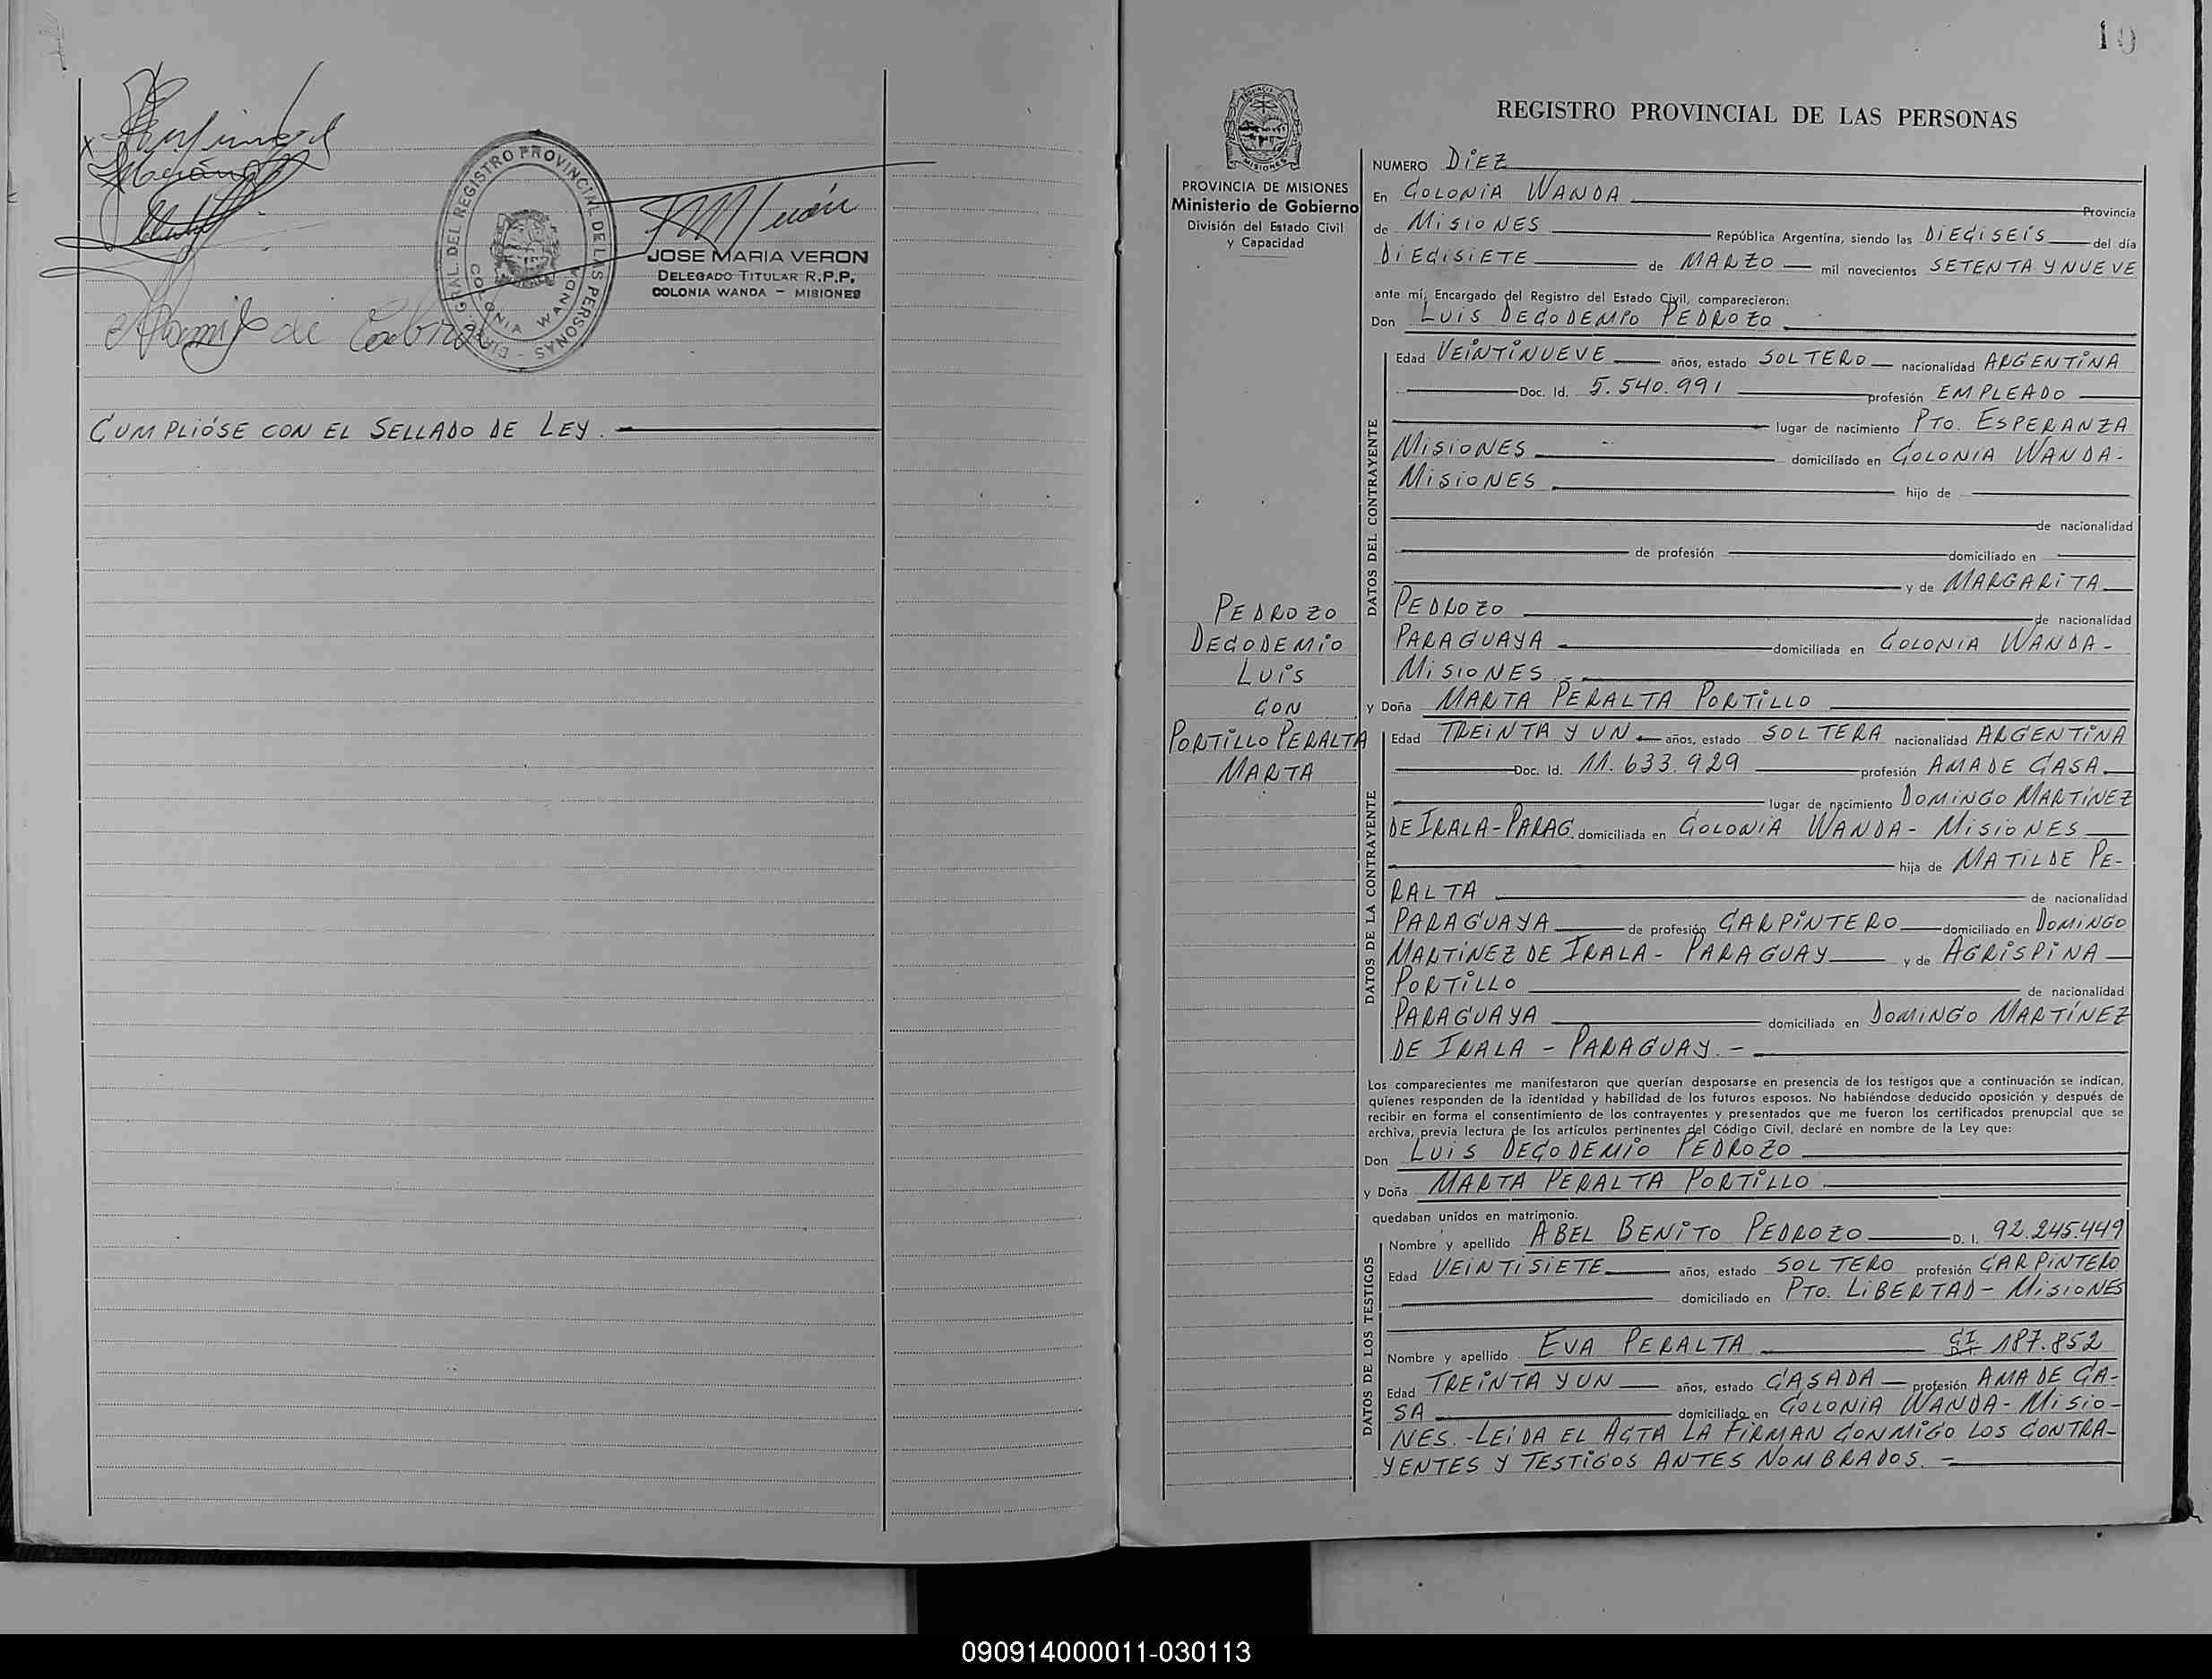 JOSE MARIA VERON
DELEGADO TITULAR R.P.P.
COLONIA WANDA - MISIONES
DIREC. GRAL. DEL REGISTRO PROVINCIAL DE LAS PERSONAS
COLONIA WANDA
de Cabral
CUMPLIÓSE CON EL SELLADO DE LEY.
10
REGISTRO PROVINCIAL DE LAS PERSONAS
PROVINCIA DE MISIONES
Ministerio de Gobierno
División del Estado Civil
y Capacidad
PEDROZO
DECODEMIO
LUIS
CON
PORTILLO PERALTA
MARTA
NUMERO DIEZ
En COLONIA WANDA Provincia
de MISIONES República Argentina, siendo las DIECISEIS del día
DIECISIETE de MARZO mil novecientos SETENTA Y NUEVE
ante mí, Encargado del Registro del Estado Civil, comparecieron:
Don LUIS DECODEMIO PEDROZO
DATOS DEL CONTRAYENTE
Edad VEINTINUEVE años, estado SOLTERO nacionalidad ARGENTINA
Doc. Id. 5.540.991 profesión EMPLEADO
lugar de nacimiento PTO. ESPERANZA
MISIONES domiciliado en COLONIA WANDA-
MISIONES hijo de
de nacionalidad
de profesión domiciliado en
y de MARGARITA
PEDROZO de nacionalidad
PARAGUAYA domiciliada en COLONIA WANDA-
MISIONES.-
y Doña MARTA PERALTA PORTILLO
DATOS DE LA CONTRAYENTE
Edad TREINTA Y UN años, estado SOLTERA nacionalidad ARGENTINA
Doc. Id. 11.633.929 profesión AMA DE CASA
lugar de nacimiento DOMINGO MARTÍNEZ
DE IRALA-PARAG. domiciliada en COLONIA WANDA- MISIONES
hija de MATILDE PE-
RALTA de nacionalidad
PARAGUAYA de profesión CARPINTERO domiciliado en DOMINGO
MARTÍNEZ DE IRALA- PARAGUAY y de AGRISPINA
PORTILLO de nacionalidad
PARAGUAYA domiciliada en DOMINGO MARTÍNEZ
DE IRALA - PARAGUAY.-
Los comparecientes me manifestaron que querían desposarse en presencia de los testigos que a continuación se indican,
quienes responden de la identidad y habilidad de los futuros esposos. No habiéndose deducido oposición y después de
recibir en forma el consentimiento de los contrayentes y presentados que me fueron los certificados prenupcial que se
archiva, previa lectura de los artículos pertinentes del Código Civil, declaré en nombre de la Ley que:
Don LUIS DECODEMIO PEDROZO
y Doña MARTA PERALTA PORTILLO
quedaban unidos en matrimonio.
DATOS DE LOS TESTIGOS
Nombre y apellido ABEL BENITO PEDROZO D. I. 92.245.449
Edad VEINTISIETE años, estado SOLTERO profesión CARPINTERO
domiciliado en PTO. LIBERTAD- MISIONES
Nombre y apellido EVA PERALTA C.I. D.I. 187.852
Edad TREINTA Y UN años, estado CASADA profesión AMA DE CA-
SA domiciliado en COLONIA WANDA- MISIO-
NES.-LEIDA EL ACTA LA FIRMAN CONMIGO LOS CONTRA-
YENTES Y TESTIGOS ANTES NOMBRADOS.-
090914000011-030113